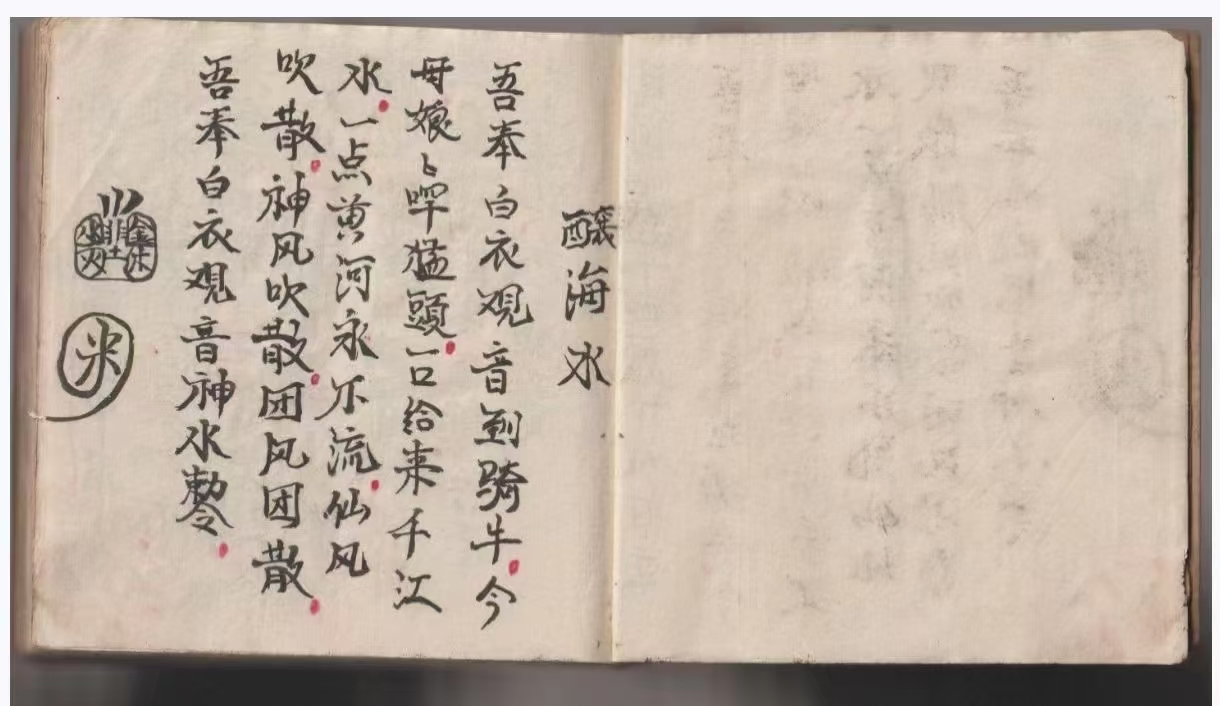 釀海水
吾奉白衣观音到骑牛今
母娘〻啅猛頭一口给来千江
水一点黄河永不流仙风
吹散神风吹散团风团散
吾奉白衣观音神水勅令